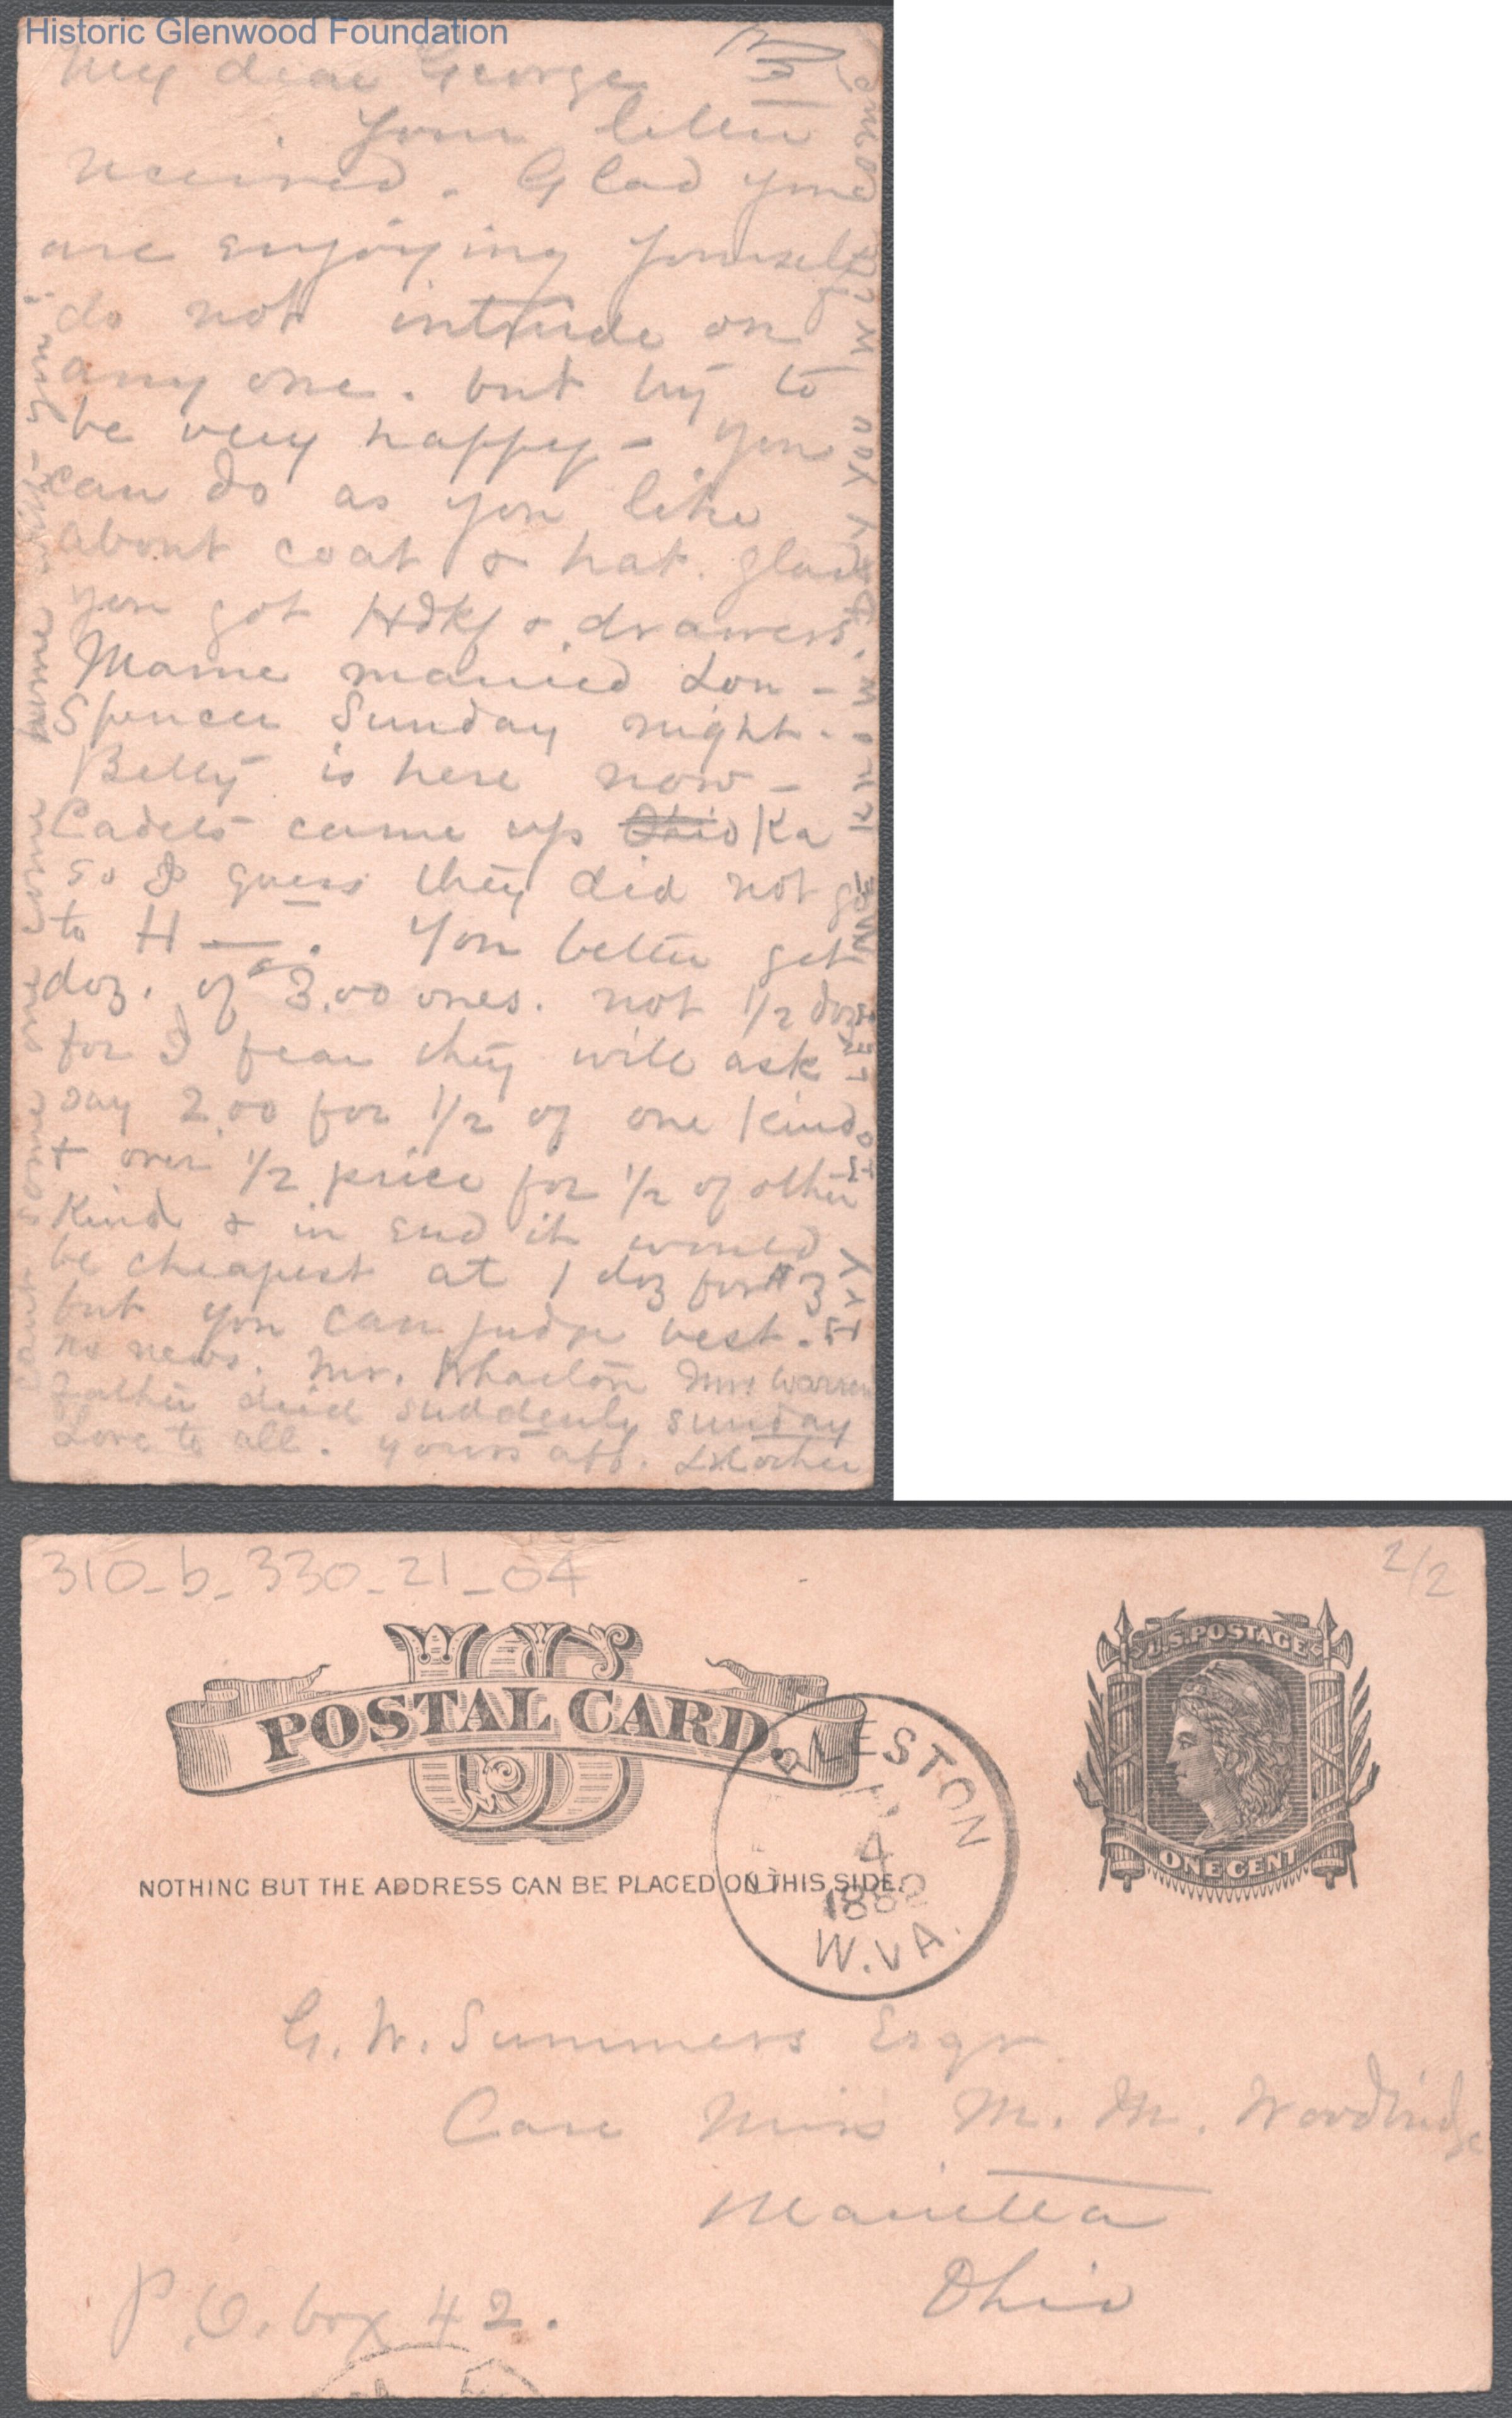 Historic Glenwood Foundation
My dear George
Your letter
received. Glad you
are enjoying yourself
do not intrude on
any one. but try to
be very happy - you
can do as you like
about coat & hat. glad
you got Hdkf & drawers.
Mame married Lon -
Spencer Sunday night.
Betty is here now -
Cadets came up Ohio Ka
so I guess they did not go
to H —. You better get
doz. of 3.00 ones. not 1/2 doz
for I fear they will ask
say 2.00 for 1/2 of one kind
+ over 1/2 price for 1/2 of other
kind & in end it would
be cheapest at 1 doz for $3
but you can judge best.
no news. Mr. Wharton Mrs Warren
father died suddenly sunday
Love to all. yours aff. LMother
310_b_330_21_04
2/2
US
POSTAL CARD.
U.S. POSTAGE
ONE CENT
NOTHING BUT THE ADDRESS CAN BE PLACED ON THIS SIDE.
RLESTON
4
1882
W.VA.
G. W. Summers Esqr
Care Miss M. M. Woodbridge
Marietta
Ohio
P.O. box 42.